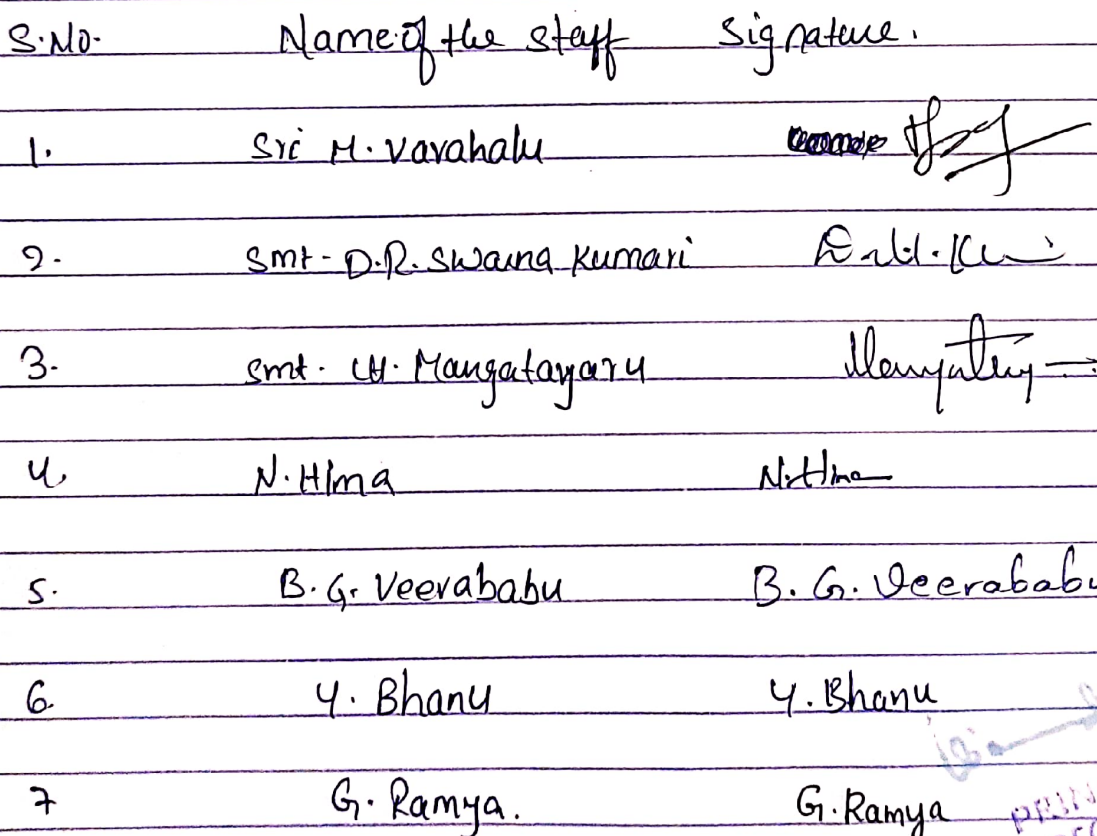 S.No. Name of the staff Signature.
1. Sri M. Varahalu
2. Smt - D.R. Swarna Kumari
3. Smt. CH. Mangatayaru
4. N. Hima N. Hima
5. B. G. Veerababu B. G. Veerababu
6. Y. Bhanu Y. Bhanu
7 G. Ramya. G. Ramya